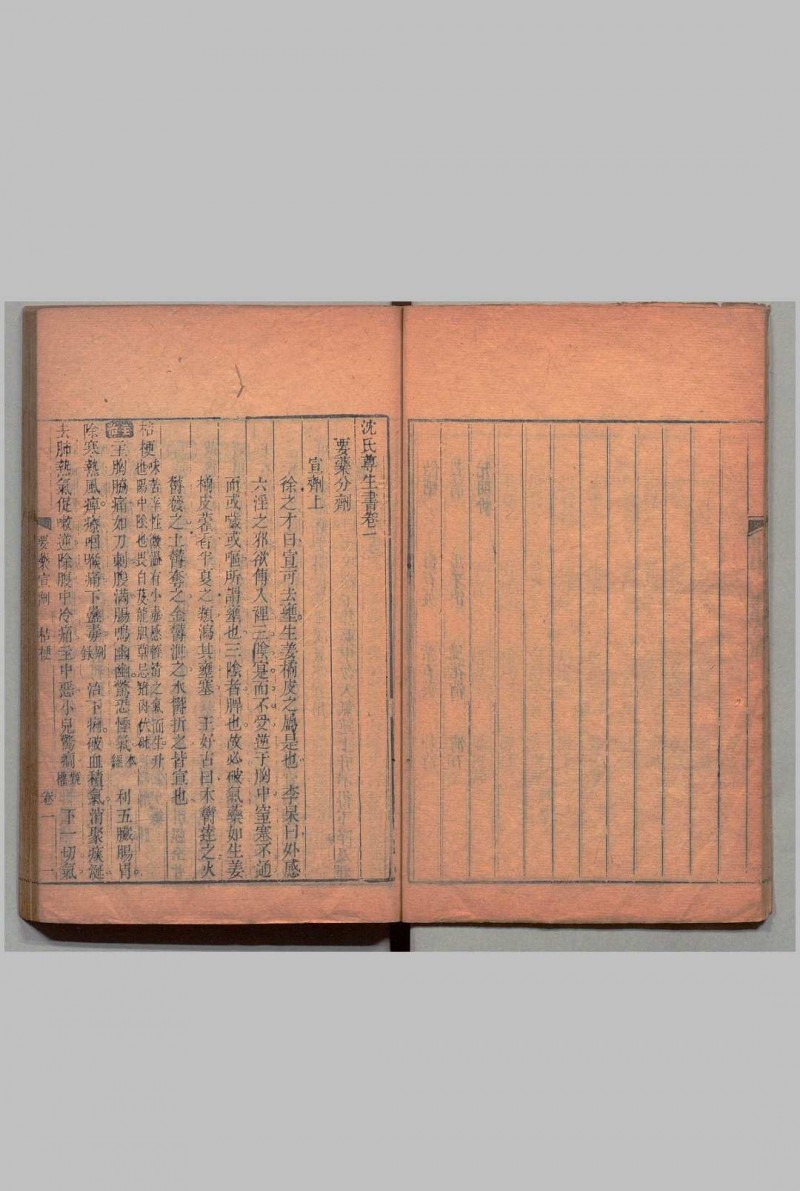 沈氏尊生書卷一
要藥分劑
宣劑上
徐之才曰宣可去壅生姜橘皮之屬是也 李杲曰外感
六淫之邪欲傳入裡三陰實而不受逆于胸中窒塞不通
而或噦或嘔所謂壅也三陰者脾也故必破氣藥如生姜
橘皮藿香半夏之類瀉其壅塞 王好古曰木鬱達之火
鬱發之土鬱奪之金鬱泄之水鬱折之皆宣也
桔梗 味苦辛性微溫有小毒稟輕清之氣而生升
也陽中陰也畏白芨龍眼龍胆草忌猪肉伏砒
主治 主胸脇痛如刀刺腹滿腸鳴幽幽驚恐悸氣 本經 利五臟腸胃
除寒熱風痺療咽喉痛下蠱毒 別錄 治下痢破血積氣消聚痰涎
去肺熱氣促嗽逆除腹中冷痛主中惡小兒驚癇 甄權 下一切氣
要藥宣劑 桔梗 卷一